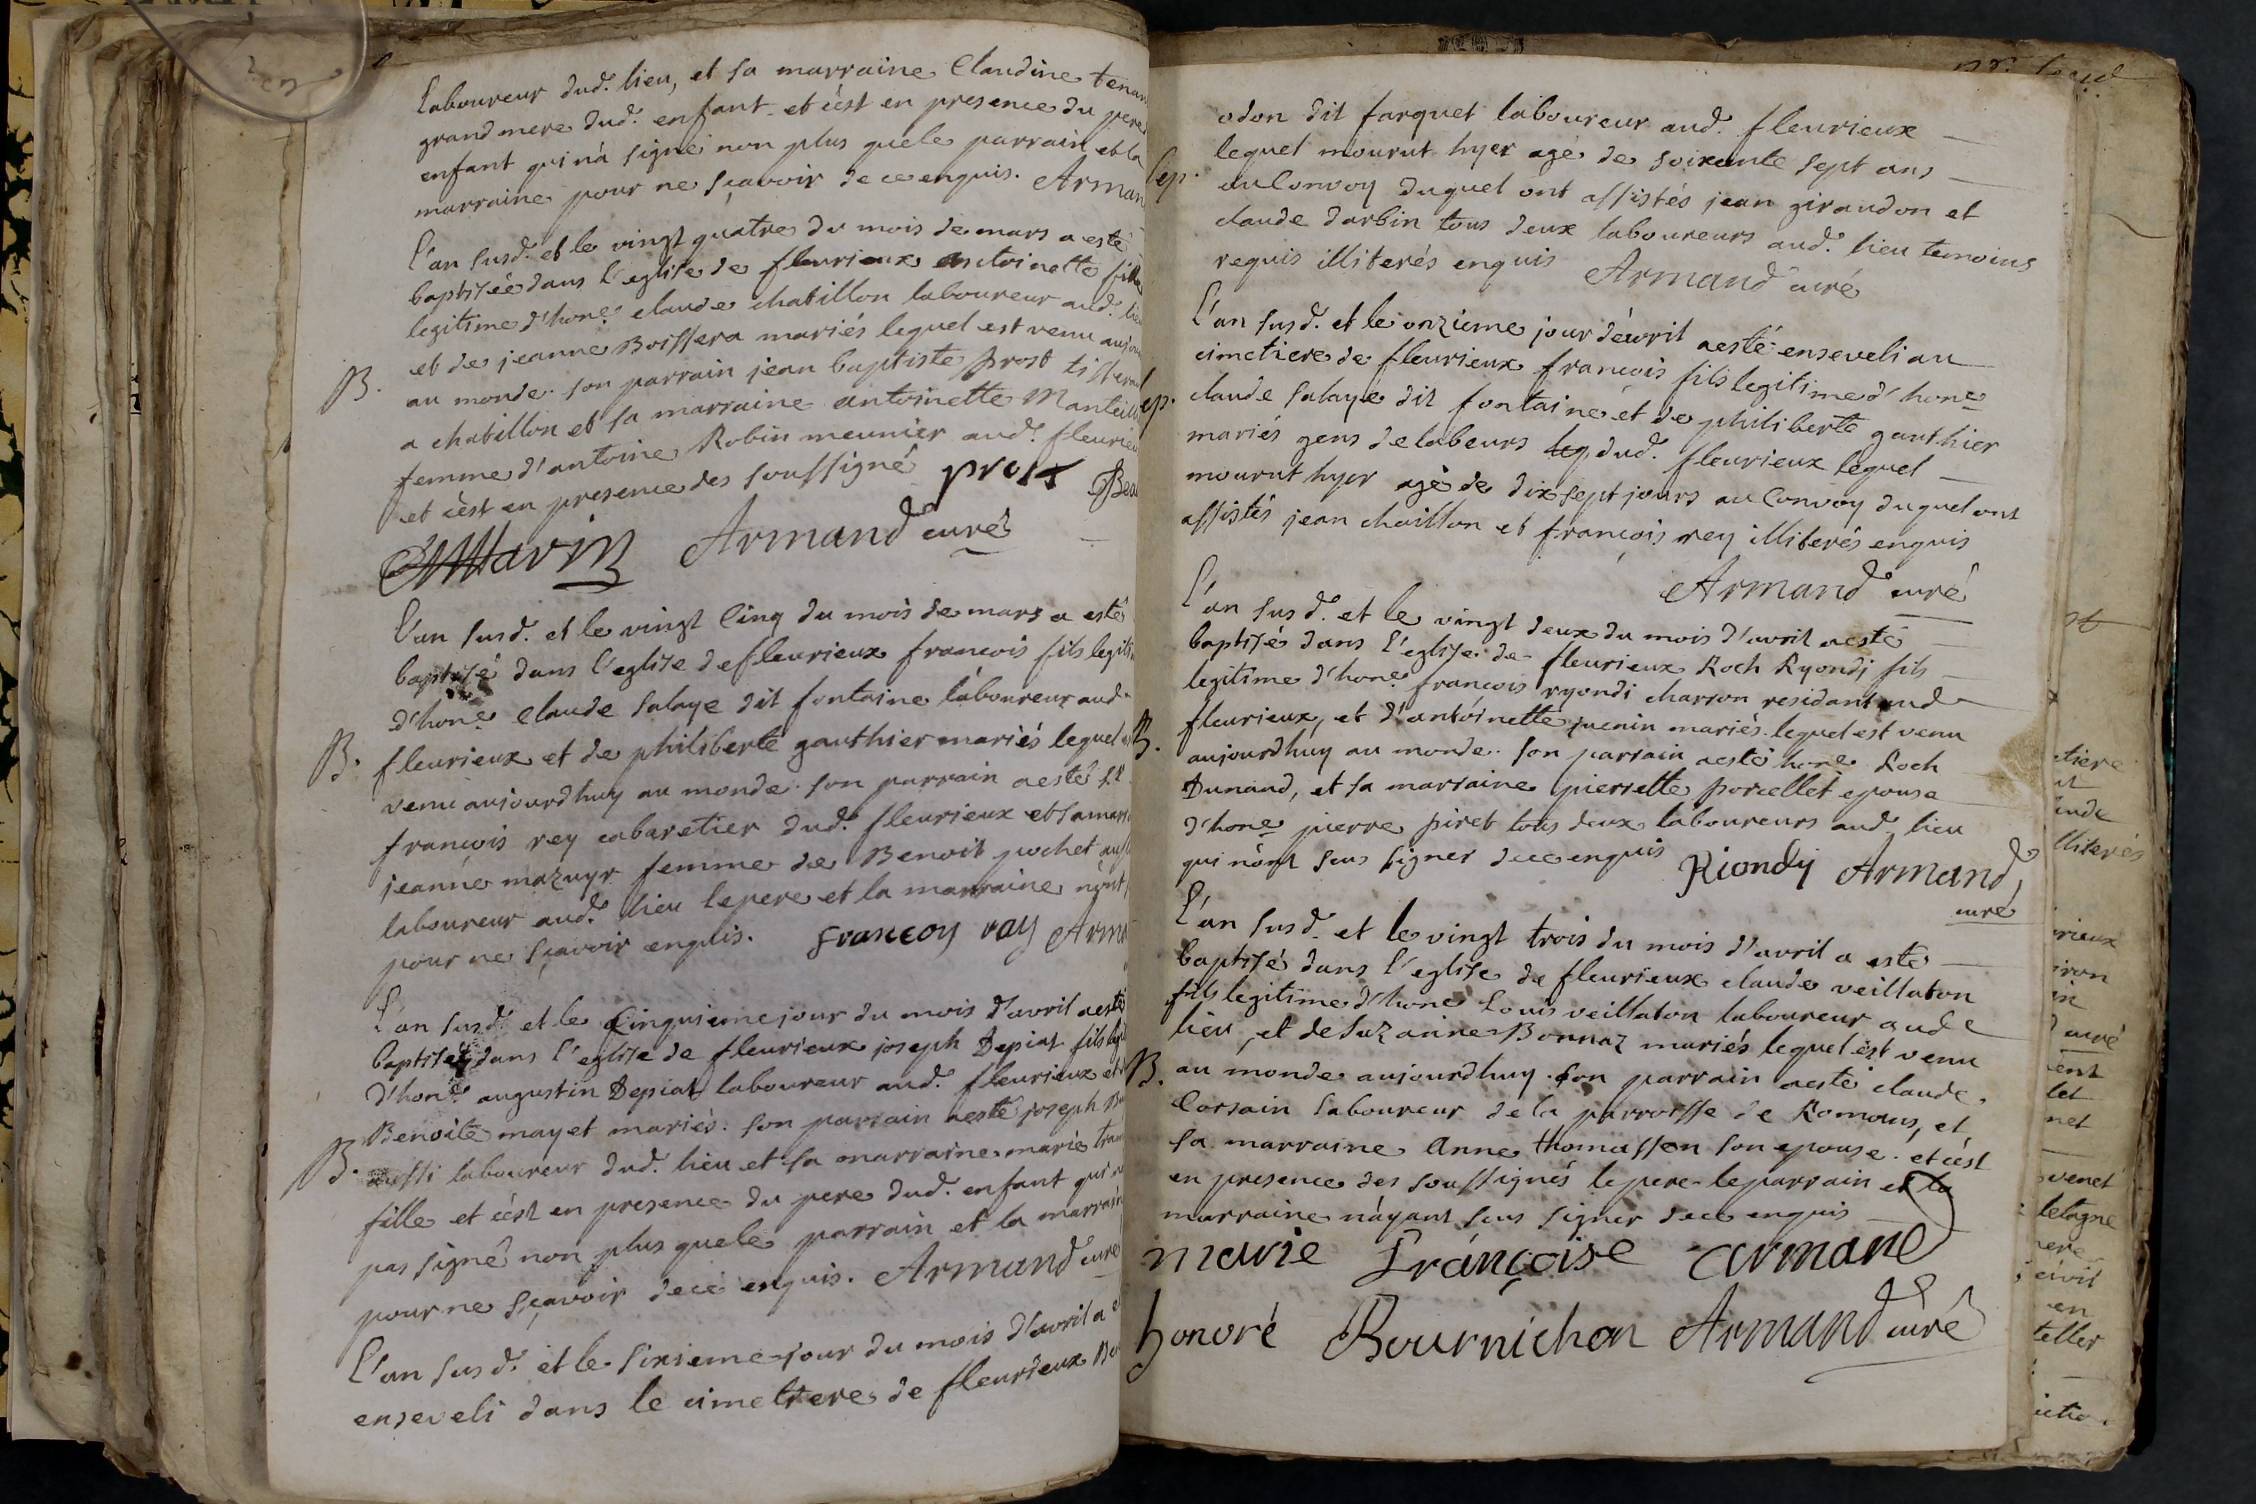 laboureur dud. lieu, et sa marraine Claudine
grand mere dud. enfant et c'est en presence du pere
enfant qui n'a signé non plus que le parrain et la
marraine pour ne sçavoir de ce enquis. Arman
L'an susd. et le vingt quatre du mois de mars a esté
baptisée dans l'eglise de fleurieux antoinette fille
legitime d'hone. claude chatillon laboureur aud. lieu
et de jeanne Boissera mariés lequel est venu aujour
B.
au monde. son parrain jean baptiste prost tisseran
a chatillon et sa marraine antoinette
femme d'antoine Robin meunier aud. fleurieu
et c'est en presence des soussigné prost
Armand curé
L'an susd. et le vingt cinq du mois de mars a esté
baptisé dans l'eglise de fleurieux francois fils legiti
d'hone. Claude salaye dit fontaine laboureur aud.
B.
fleurieux et de philiberte gauthier mariés lequel
venu aujourdhuy au monde. son parrain a esté sr.
francois rey cabaretier dud. fleurieux et sa marr
jeanne mazuyr femme de Benoit pochet aussi
laboureur aud. lieu le pere et la marraine n'ont
pour ne sçavoir enquis. francoy ray Arma
L'an susd. et le cinquieme jour du mois d'avril a esté
baptisé dans l'eglise de fleurieux joseph Depiat fils legi
d'hone. augustin Depiat laboureur aud. fleurieux et
Benoite mayet mariés. son parrain a esté joseph
B.
aussi laboureur dud. lieu et sa marraine marie
fille et c'est en presence du pere dud. enfant qui n
pas signé non plus que le parrain et la marraine
pour ne sçavoir de ce enquis. Armand curé
L'an susd. et le sixieme jour du mois d'avril a
enseveli dans le cimettiere de fleurieux
odon dit farquet laboureur aud. fleurieux
lequel mourut hyer agé de soixante sept ans
sep.
au Convoy duquel ont assistés jean giraudon et
claude darbin tous deux laboureurs aud. lieu temoins
requis illiterés enquis Armand curé
L'an susd. et le onzieme jour d'avril a esté enseveli au
cimetiere de fleurieux francois fils legitime d'hone
sep.
claude salaye dit fontaine et de philiberte gauthier
mariés gens de labeurs leq dud. fleurieux lequel
mourut hyer agé de dix sept jours au Convoy duquel ont
assistés jean chaillon et françois rey illiterés enquis
Armand curé
L'an susd. et le vingt deux du mois d'avril a esté
baptisé dans l'eglise de fleurieux Roch Ryondj fils
legitime d'hone. francois ryondi charron residant aud
B.
fleurieux, et d'antoinette juenin mariés. lequel est venu
aujourdhuy au monde. son parrain a esté hone. Roch
Dunand, et sa marraine pierrette porcellet epouse
d'hone pierre piret tous deux laboureurs aud. lieu
qui n'ont sceu signer de ce enquis Riondy Armand
curé
L'an susd. et le vingt trois du mois d'avril a esté
baptisé dans l'eglise de fleurieux claude veillaton
fils legitime d'hone Louis veillaton laboureur aud
lieu, et de Suzanne Bonnaz mariés lequel est venu
B.
au monde aujourdhuy. son parrain a esté claude
Corsain laboureur de la parroisse de Romans, et
sa marraine Anne thomasson son epouse. et c'est
en presence des soussignés le pere le parrain et la
marraine n'ayant sceu signer de ce enquis
marie françoise armand
honoré Bournichon Armand curé